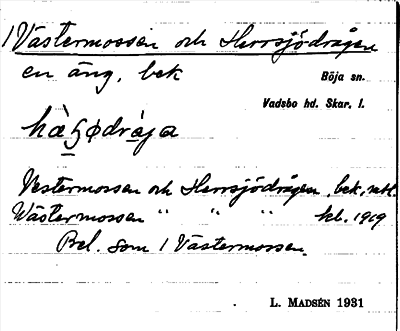 1 Västermossen och Herrsjödrågen
en äng, bek
Böja sn.
Vadsbo hd. Skar. l.
Vestermossen och Herrsjödrågen, bek,
Wästermossen " " " kl. 1919
Bel. som 1 Västermossen.
L. MADSÉN 1931